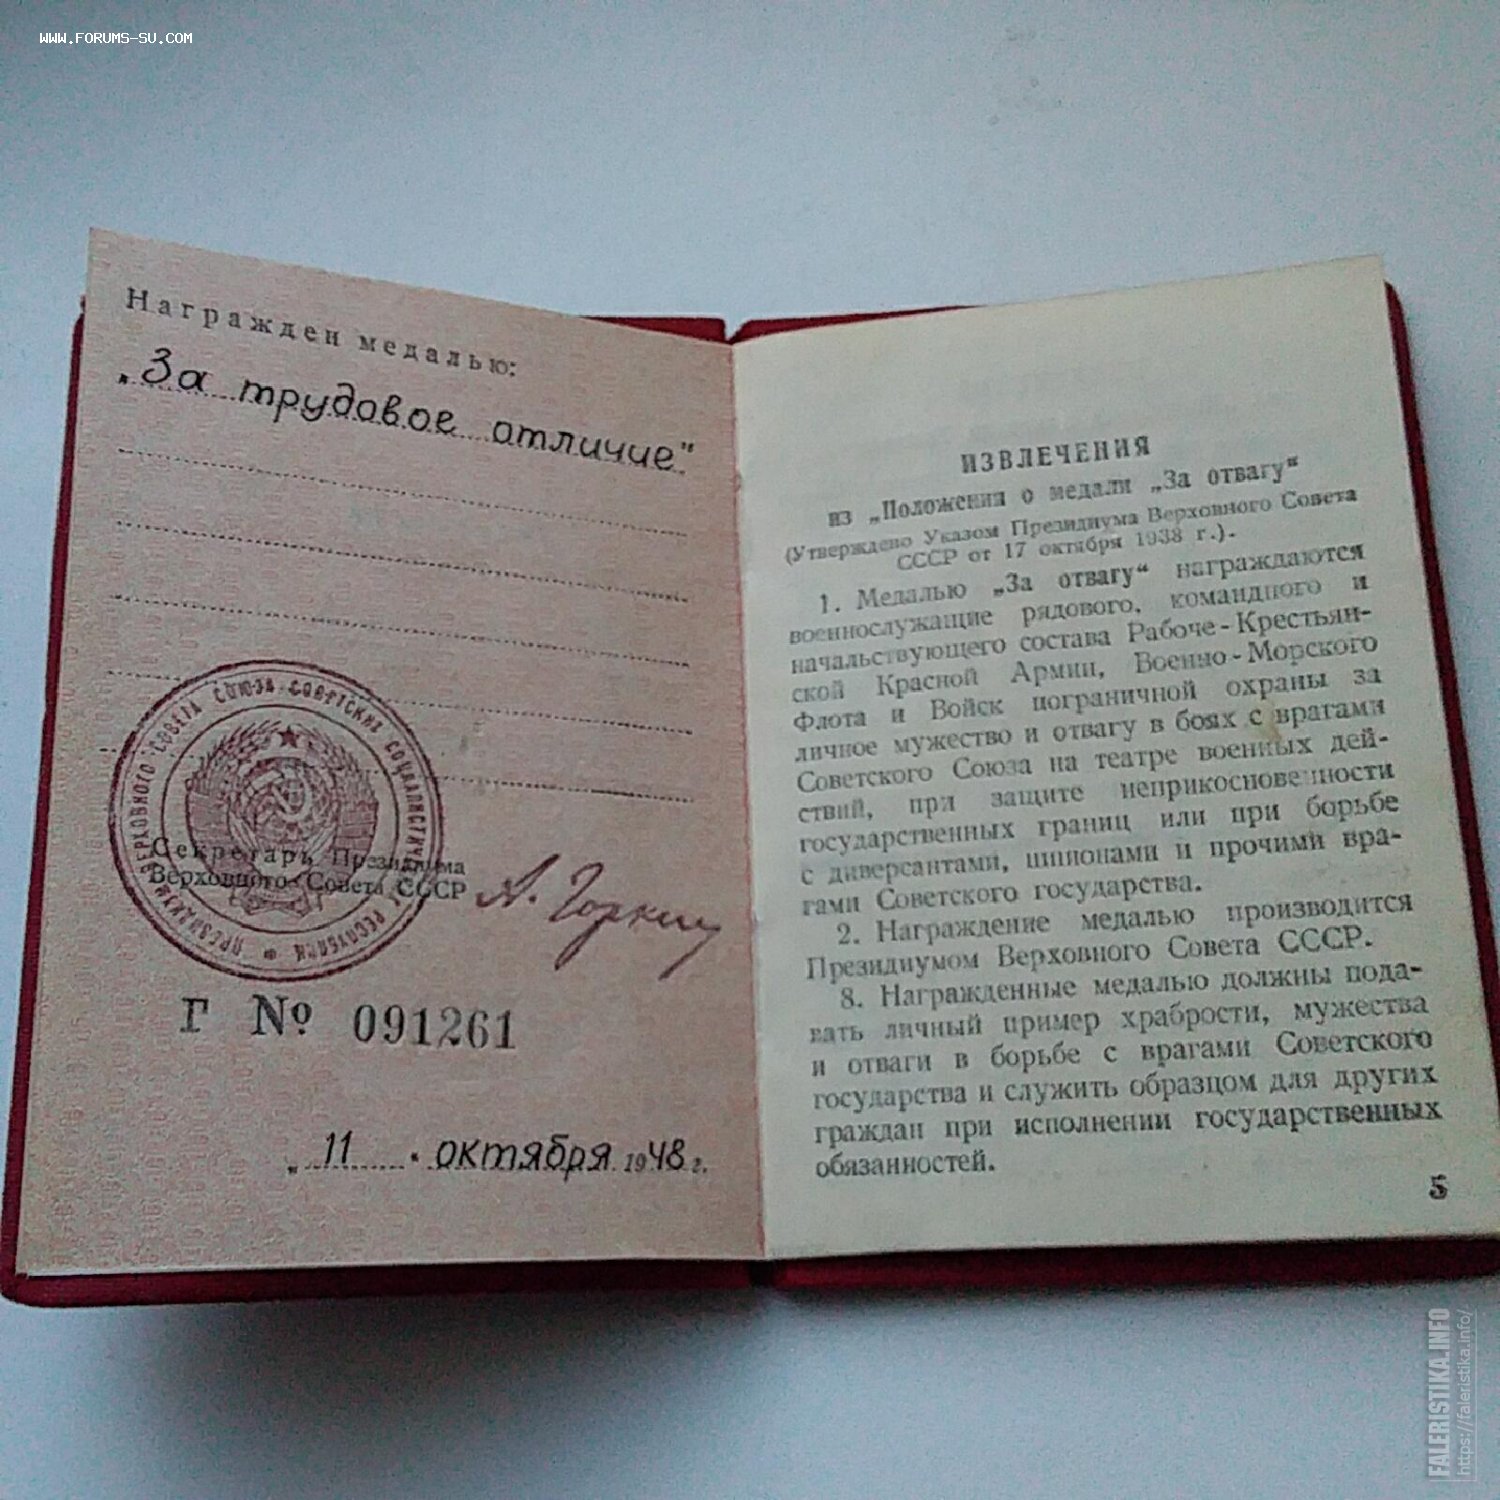 WWW.FORUMS-SU.COM
Награжден медалью:
„За трудовое отличие"
СЕКРЕТАРЬ ПРЕЗИДИУМА
Верховного Совета СССР
А. Горкин
ПРЕЗИДИУМ ВЕРХОВНОГО СОВЕТА СОЮЗА СОВЕТСКИХ СОЦИАЛИСТИЧЕСКИХ РЕСПУБЛИК
Г № 091261
„11" октября 1948 г.
ИЗВЛЕЧЕНИЯ
из „Положения о медали „За отвагу“
(Утверждено Указом Президиума Верховного Совета
СССР от 17 октября 1938 г.).
1. Медалью „За отвагу“ награждаются
военнослужащие рядового, командного и
начальствующего состава Рабоче-Крестьян-
ской Красной Армии, Военно-Морского
Флота и Войск пограничной охраны за
личное мужество и отвагу в боях с врагами
Советского Союза на театре военных дей-
ствий, при защите неприкосновенности
государственных границ или при борьбе
с диверсантами, шпионами и прочими вра-
гами Советского государства.
2. Награждение медалью производится
Президиумом Верховного Совета СССР.
8. Награжденные медалью должны пода-
вать личный пример храбрости, мужества
и отваги в борьбе с врагами Советского
государства и служить образцом для других
граждан при исполнении государственных
обязанностей.
5
FALERISTIKA.INFO
https://faleristika.info/